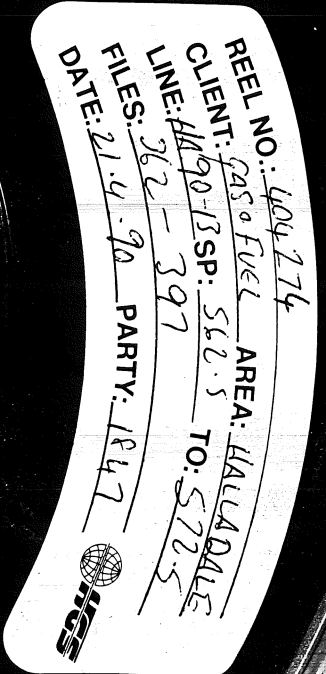 REEL NO.: 404274
CLIENT: GAS & FUEL AREA: HALLADALE
LINE: HA90-13 SP: 562.5 TO: 572.5
FILES: 362 - 397
DATE: 21.4.90 PARTY: 1847
HGS